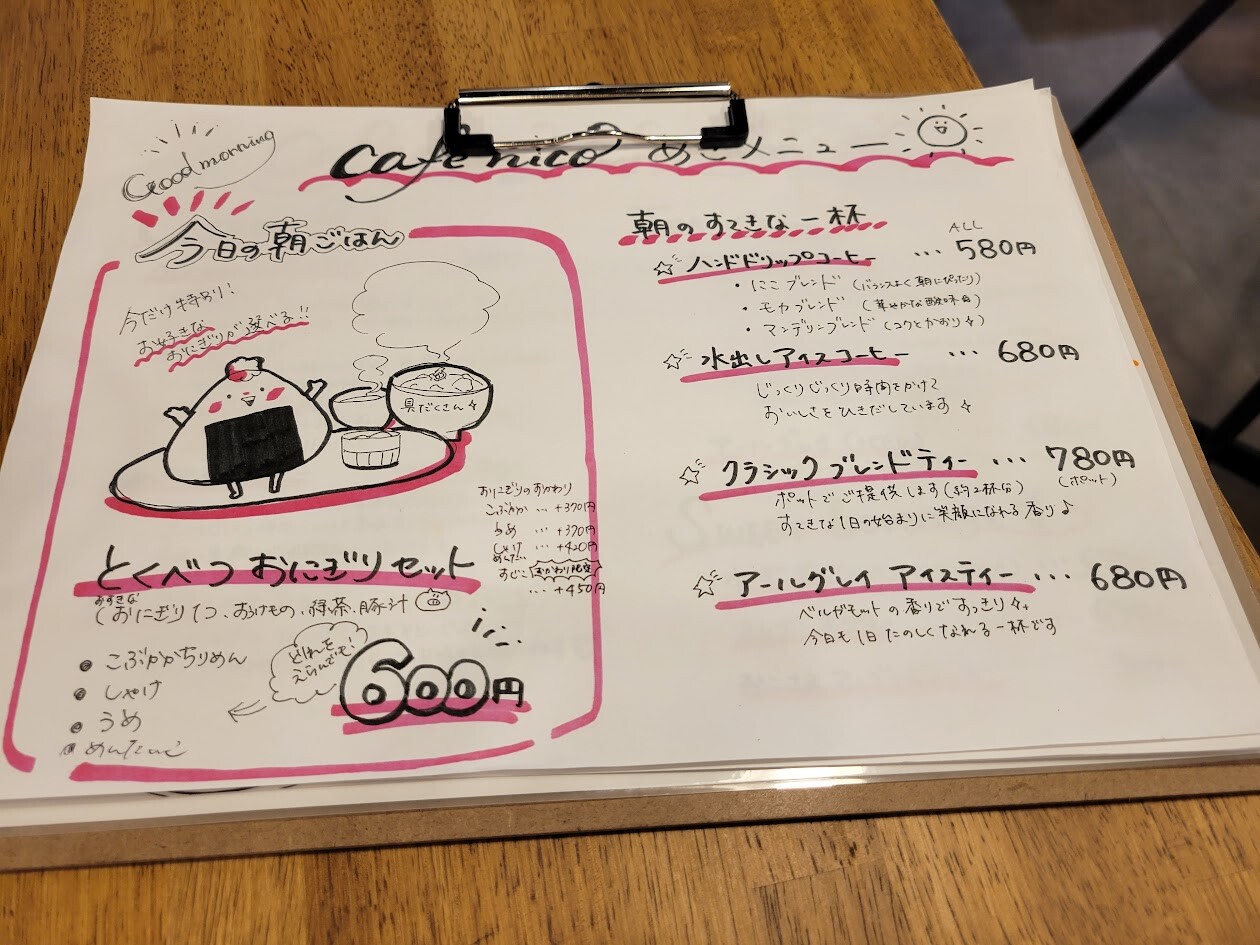 Good morning
Cafe nico あさメニュー
今日の朝ごはん
今だけ特別!
お好きな
おにぎりが選べる!!
具だくさん
おにぎりのおかわり
こぶかか … +370円
うめ … +370円
しゃけ … +420円
めんたい
すじこ おかわり限定
… +450円
とくべつ おにぎりセット
お好きな
(おにぎり1つ、おつけもの、緑茶、豚汁
• こぶかかちりめん
• しゃけ
• うめ
• めんたいこ
どれを
えらんでも!
600円
朝のすてきな一杯
ALL
☆ ハンドドリップコーヒー … 580円
・にこブレンド (バランスよく朝にぴったり)
・モカブレンド (華やかな酸味)
・マンデリンブレンド (コクとかおり)
☆ 水出しアイスコーヒー … 680円
じっくりじっくり時間をかけて
おいしさをひきだしています
☆ クラシックブレンドティー … 780円
(ポット)
ポットでご提供します(約2杯分)
すてきな1日の始まりに笑顔になれる香り♪
☆ アールグレイ アイスティー … 680円
ベルガモットの香りですっきり
今日も1日たのしくなれる一杯です